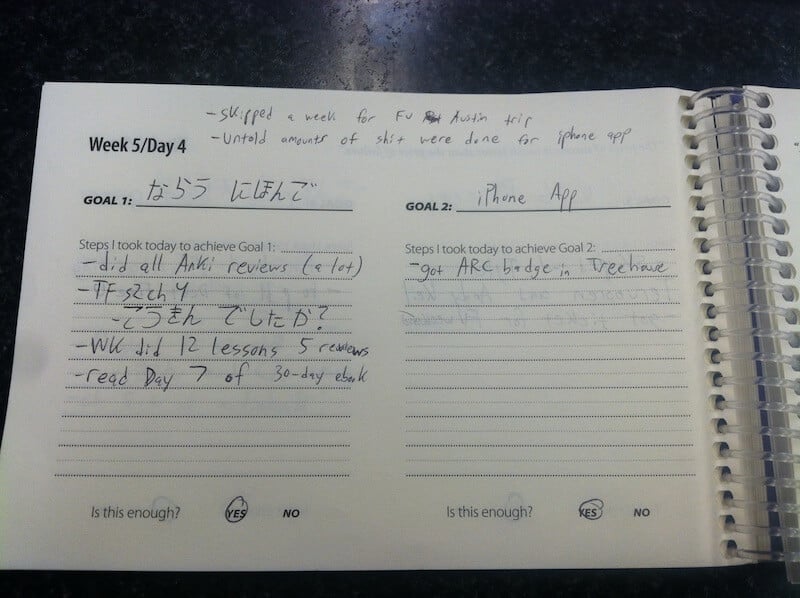 - Skipped a week for FU Austin trip
- Untold amounts of shit were done for iphone app
Week 5/Day 4
GOAL 1: ならう にほんご
Steps I took today to achieve Goal 1:
- did all Anki reviews (a lot)
- TF s2 ch 4
- でしたか?
- WK did 12 lessons 5 reviews
- read Day 7 of 30-day ebook
Is this enough? YES NO
GOAL 2: iPhone App
Steps I took today to achieve Goal 2:
- got ARC badge in Treehouse
Is this enough? YES NO